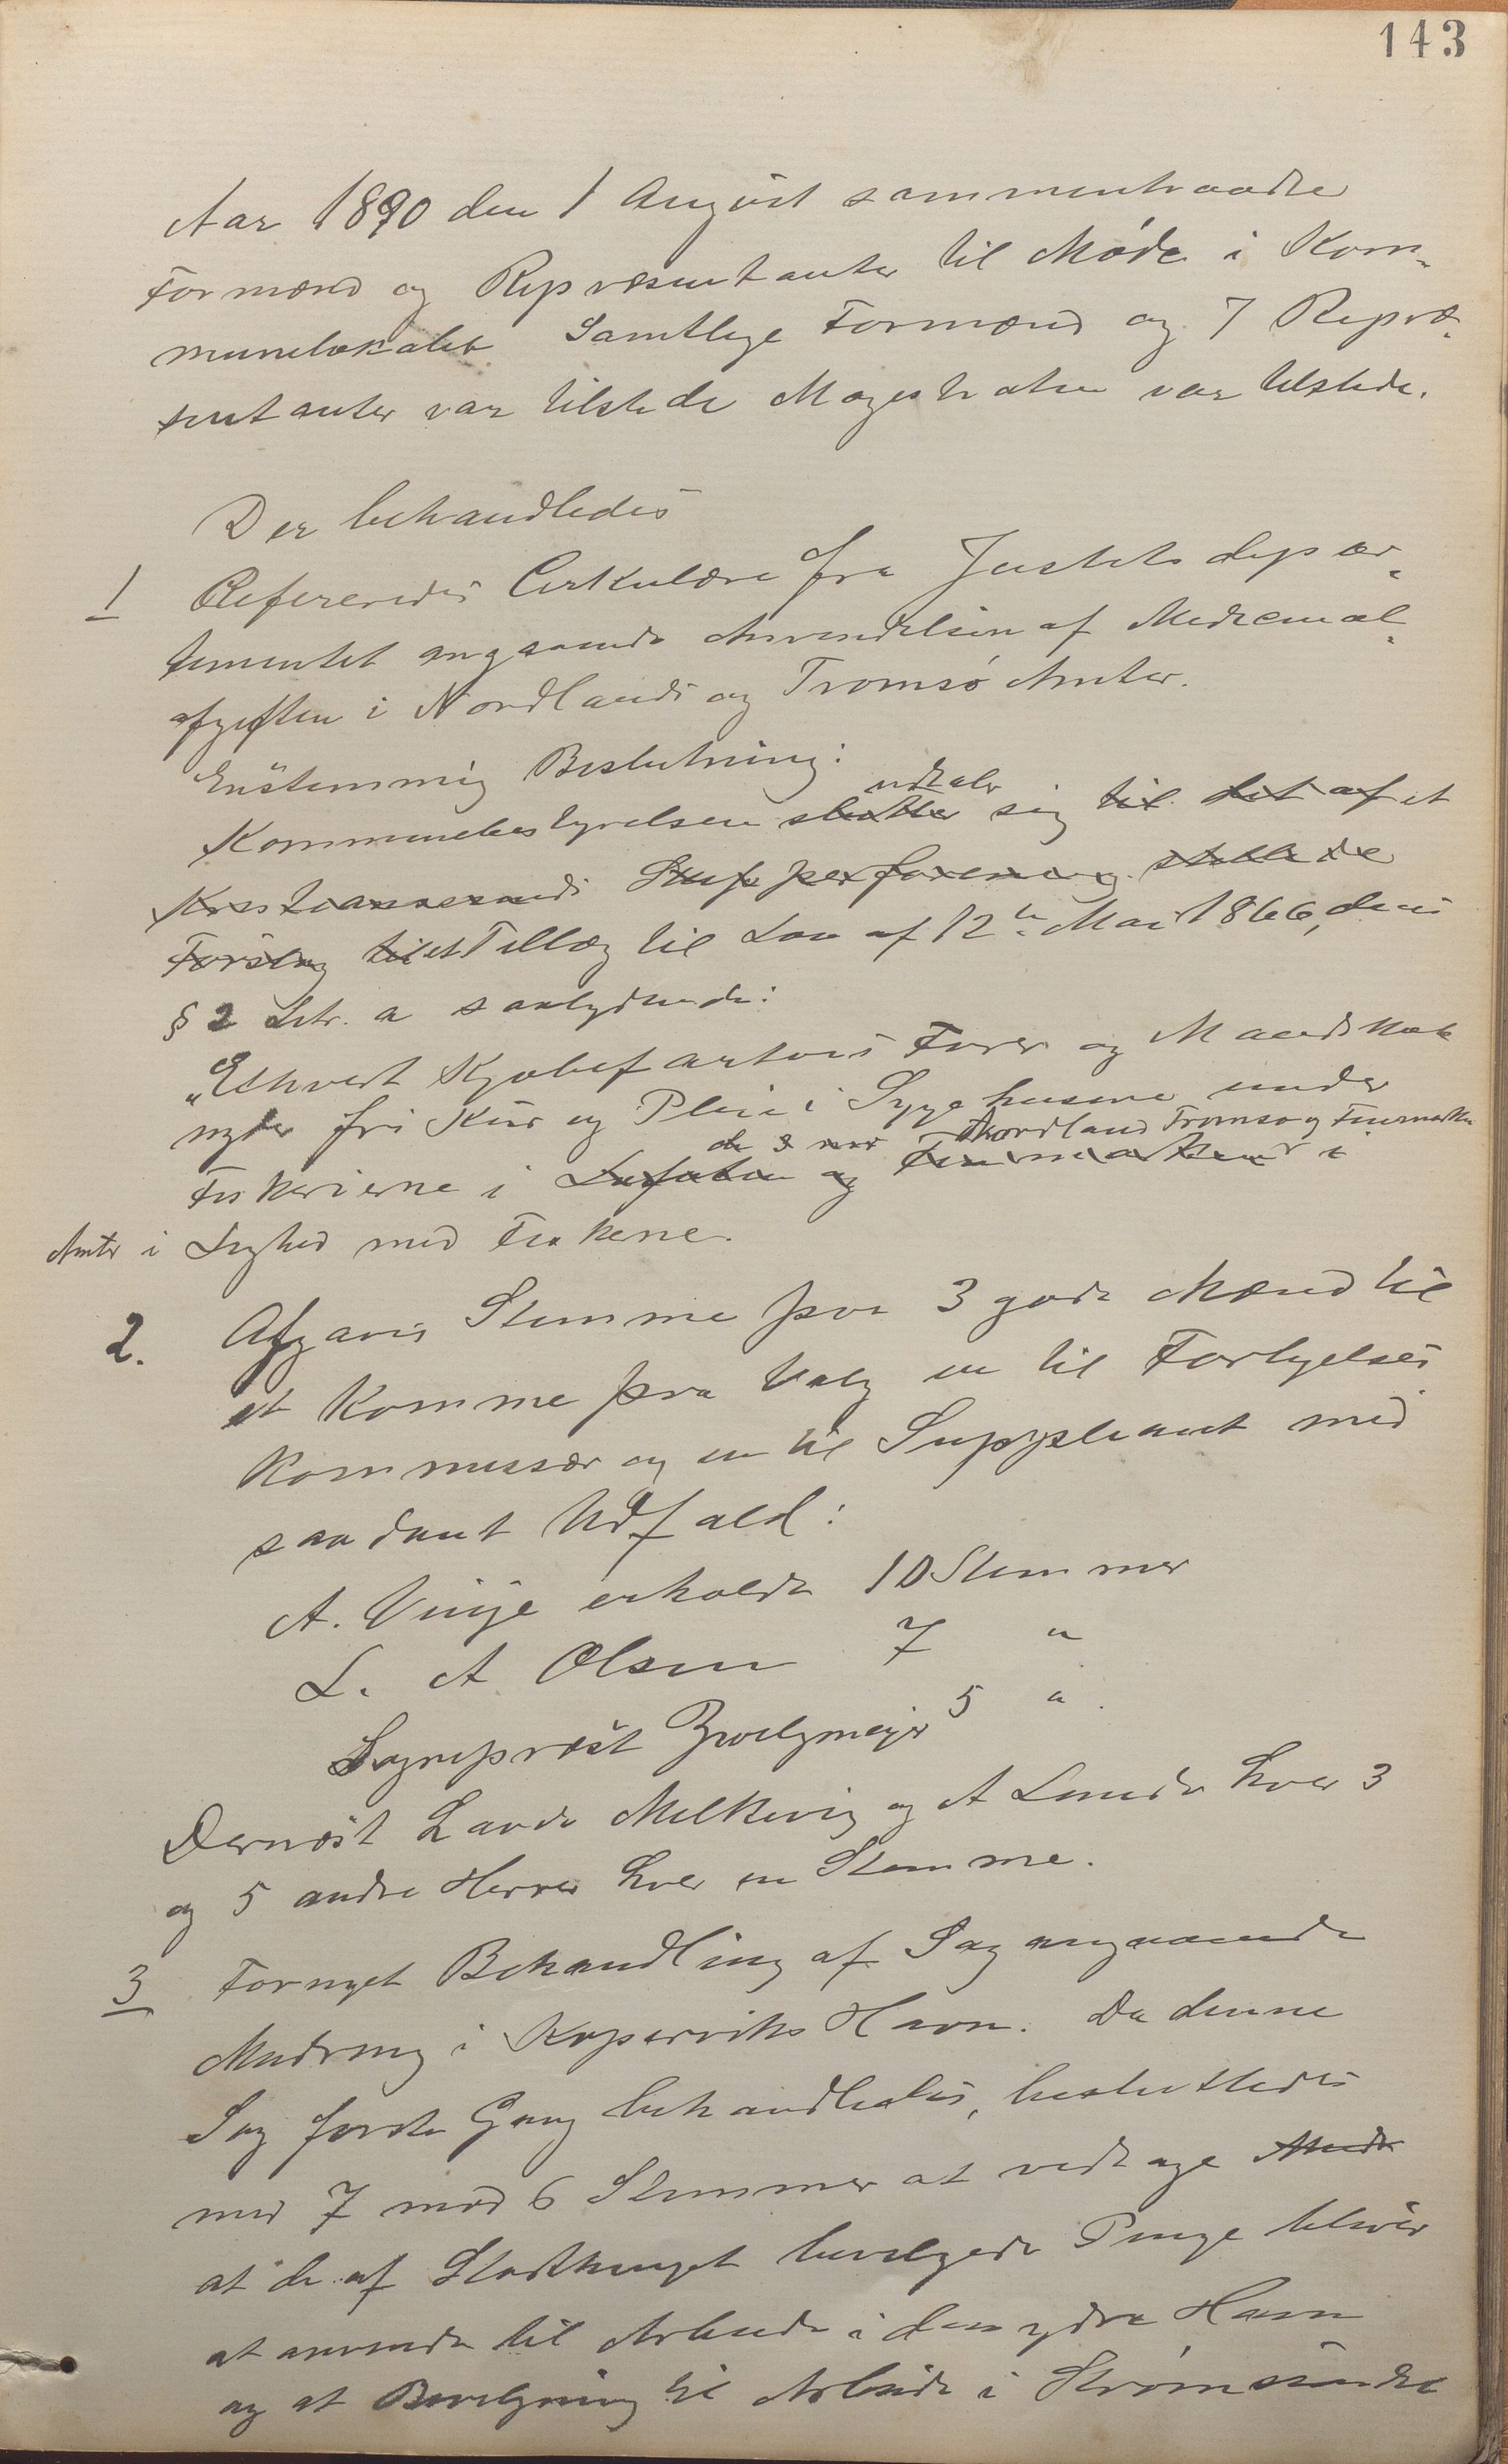 143
Aar 1890 den 1 August sammentraadte
Formænd og Repræsentanter til Møde i Kom-
munelokalet Samtlige Formænd og 7 Repræ-
sentanter var tilstede Magistraten var tilstede.
Der behandledes
1 Refereredes Cirkulære fra Justitsdepar-
tementet angaaende Anvendelsen af Medicinal-
afgiften i Nordlands og Tromsø Amter.
Enstemmig Beslutning:
udtaler
Kommunebestyrelsen slutter sig til det af et
Kristianssunds Skipperforening stillede
Forslag til et Tillæg til Lov af 12te Mai 1866, dens
§ 2 Litr. a saalydende:
"Ethvert Kjøbefartøis Fører og Mandskab
nyder fri Kur og Pleie i Sygehusene under
de 3 Nordland Tromsø og Finmarken
Fiskerierne i Lofoten og Finmarken i
Amter i Lighed med Fiskerne.
2. Afgaves Stemme paa 3 gode Mænd til
at komme paa Valg en til Forligelses
Kommissær og en til Suppleant med
saadant Udfald:
A. Vinje erholdt 10 Stemmer
L. A Olsen 7 "
Sogneprest Zwilgmeyer 5 "
Dernæst Lavds Milkevig og A Lunde hver 3
og 5 andre Herrer hver en Stemme.
3 Fornyet Behandling af Sag angaaende
Mudring i Koperviks Havn. Da denne
Sag første Gang behandledes, besluttedes
med 7 mod 6 Stemmer at vedtage Mudr
at de af Storthinget bevilgede Penge bliver
at anvende til Arbeide i den ydre Havn
og at Bevilgning til Arbeide i Strømsundet